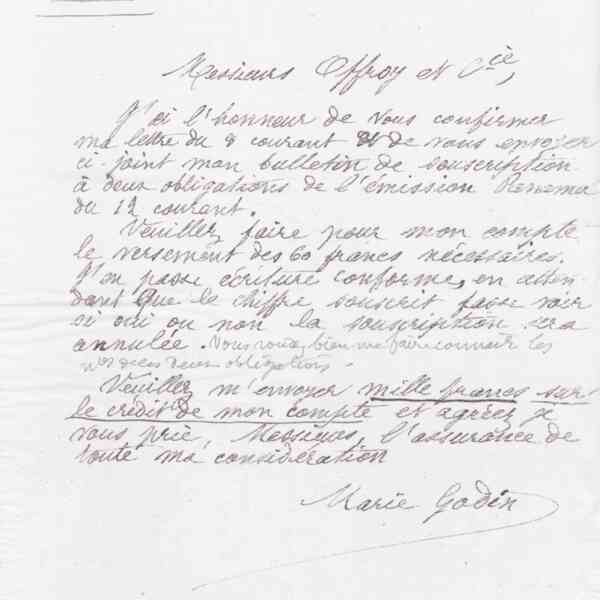 Messieurs Offroy et Cie,
J'ai l'honneur de vous confirmer
ma lettre du 8 courant et de vous envoyer
ci-joint mon bulletin de souscription
à deux obligations de l'émission Panama
du 12 courant.
Veuillez faire pour mon compte
le versement des 60 francs nécessaires.
J'en passe écriture conforme, en atten
dant que le chiffre souscrit fasse voir
si oui ou non la souscription sera
annulée. Vous voudrez bien me faire connaître les
nos de ces deux obligations.
Veuillez m'envoyer mille francs sur
le crédit de mon compte et agréez je
vous prie, Messieurs, l'assurance de
toute ma considération
Marie Godin